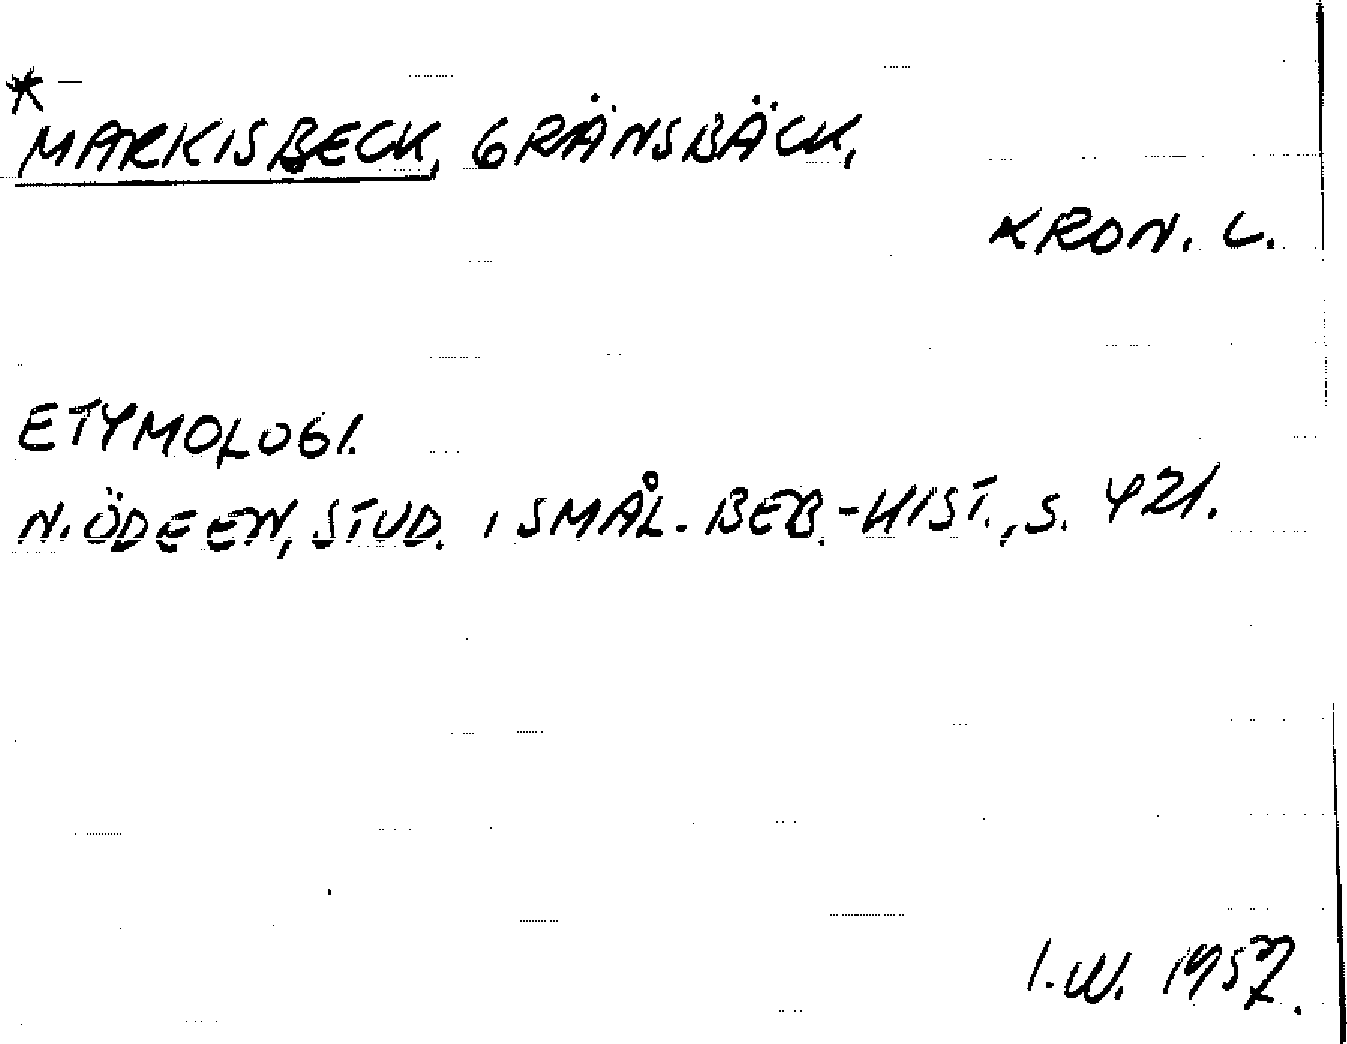 *MARKISBECK, GRÄNSBÄCK,
KRON. L.
ETYMOLOGI.
N. ÖDEEN, STUD. I SMÅL. BEB.-HIST., S. 421.
I.W. 1957.